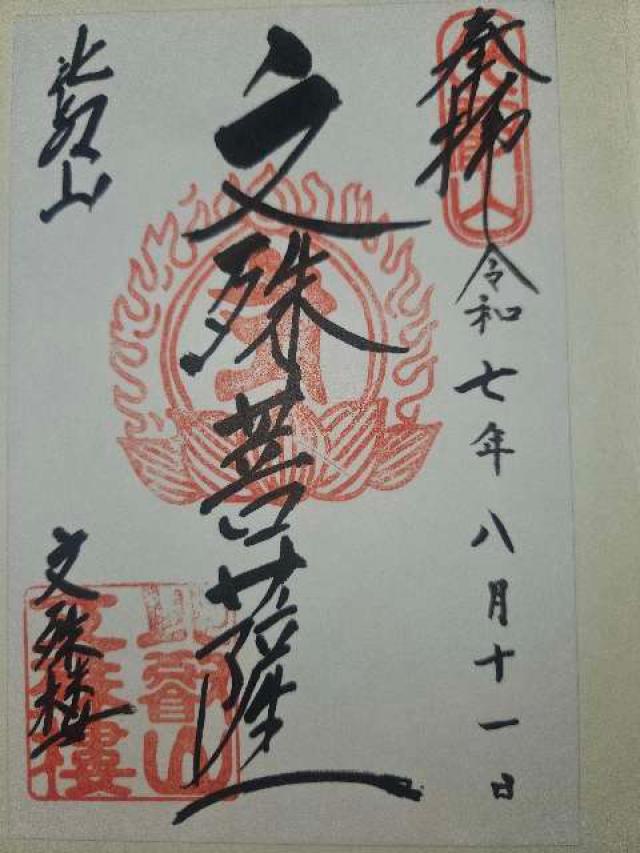 奉拝
令和七年八月十一日
文殊菩薩
比叡山
文殊楼
比叡山
文殊樓